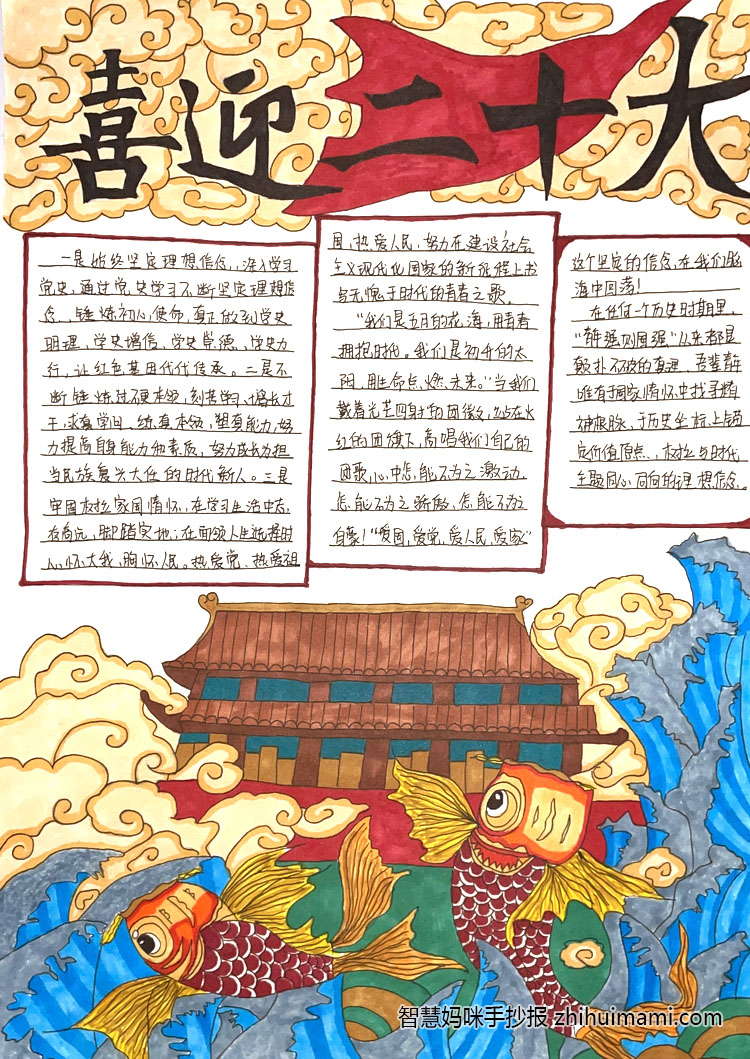 喜迎二十大
一是始终坚定理想信念,深入学习
党史,通过党史学习不断坚定理想信
念、锤炼初心使命,真正做到学史
明理,学史增信、学史崇德、学史力
行,让红色基因代代传承。二是不
断锤炼过硬本领,刻苦学习、增长才
干,求真学问、练真本领,塑有能力,努
力提高自身能力和素质,努力成长为担
当民族复兴大任的时代新人。三是
牢固权拉家国情怀,在学习生活中志
存高远,脚踏实地;在面领人生选择时
心怀大我,胸怀人民。热爱党、热爱祖
国,热爱人民,努力在建设社会
主义现代化国家的新征程上书
写无愧于时代的青春之歌。
“我们是五月的花海,用青春
拥抱时代。我们是初升的太
阳,用生命点燃未来。”当我们
戴着光芒四射的团徽,站在火
红的团旗下,高唱我们自己的
团歌,心中怎能不为之激动,
怎能不为之骄傲,怎能不为之
自豪!“爱国,爱党,爱人民,爱家”
这个坚定的信念,在我们脑
海中回荡!
在任何一个历史时期里,
“青年强则国强”从来都是
颠扑不破的真理,吾辈青年
唯有于家国情怀中找寻精
神根脉,于历史坐标上锚
定价值原点,权拉与时代
主题同心同向的理想信念。
智慧妈咪手抄报 zhihuimami.com